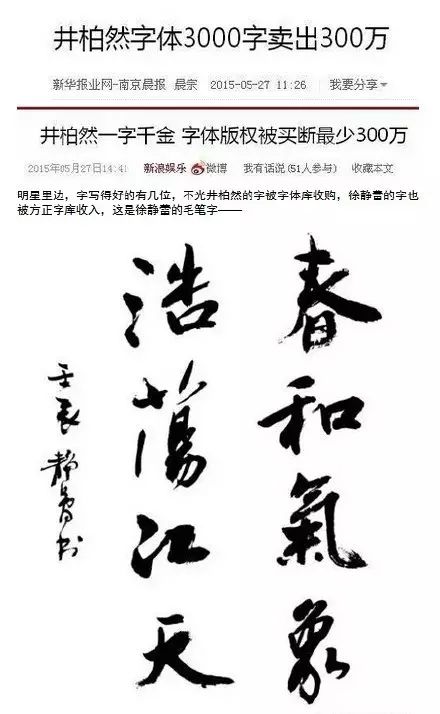 井柏然字体3000字卖出300万
新华报业网-南京晨报 晨宗 2015-05-27 11:26 我要分享
井柏然一字千金 字体版权被买断最少300万
2015年05月27日14:41 新浪娱乐 微博 我有话说(51人参与) 收藏本文
明星里边，字写得好的有几位，不光井柏然的字被字体库收购，徐静蕾的字也
被方正字库收入，这是徐静蕾的毛笔字——
春和氣象
浩蕩江天
壬辰 静蕾书